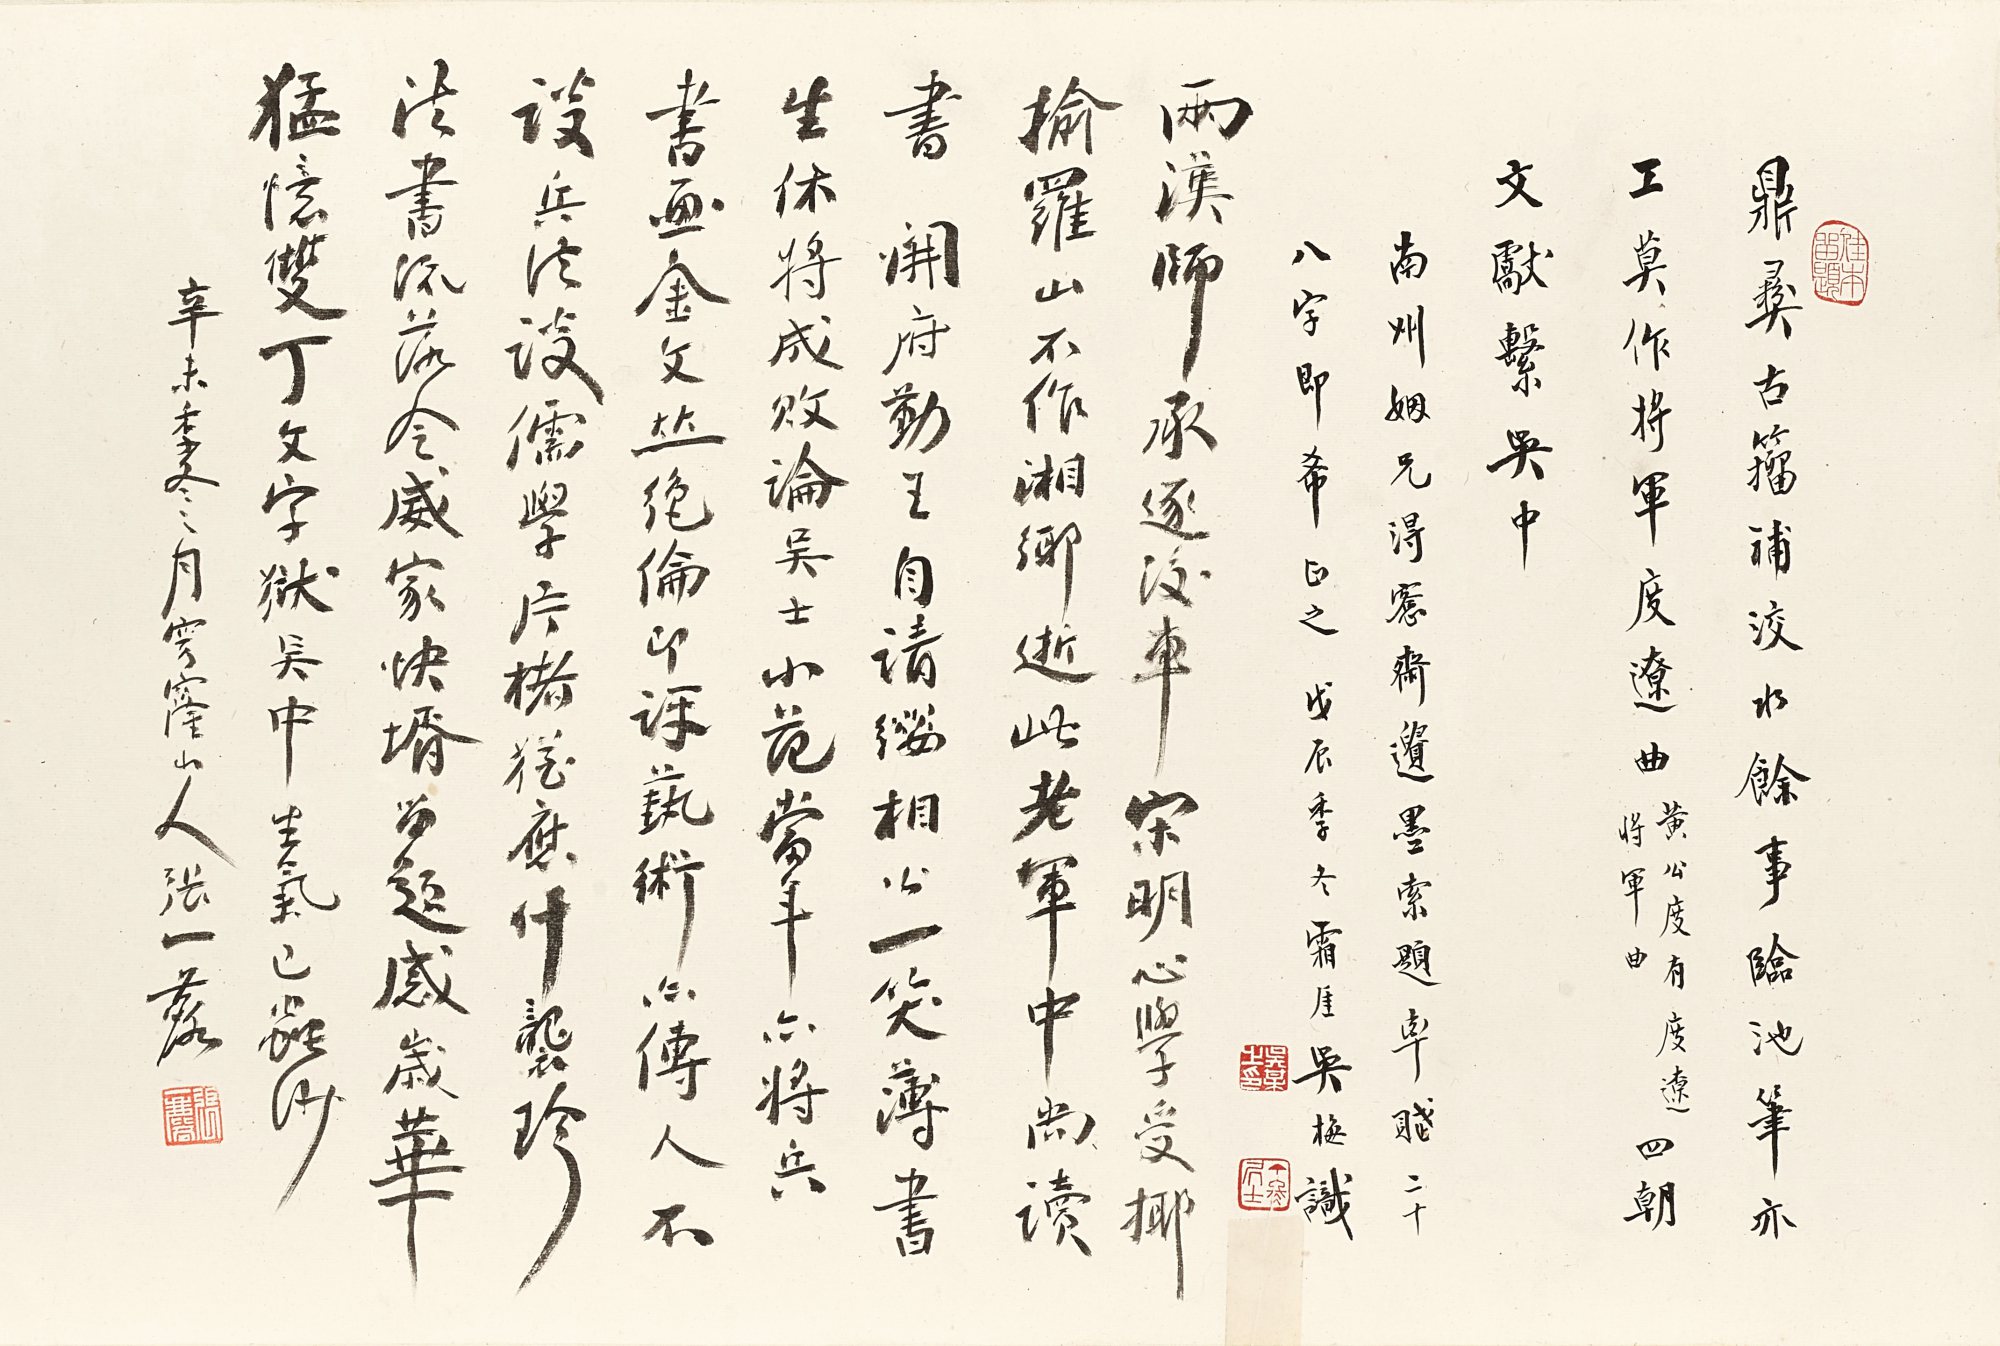 鼎彝古籀補洨水餘事臨池筆亦
工莫作將軍度遼曲黃公度有度遼將軍曲四朝
文獻繫吳中
南州姻兄得愙齋遺墨索題率賦二十
八字即希正之 戊辰季冬霜厓吳梅識
兩漢師承逐後車宋明心學受揶
揄羅山不作湘鄉逝此老軍中尚讀
書 開府勤王自請纓相公一笑薄書
生休將成敗論吳士小范當年亦將兵
書畫金文並絕倫即評藝術亦傳人不
談兵法談儒學片楮猶應什襲珍
法書流落令威家快壻留題感歲華
猛憶雙丁文字獄吳中生氣已蟲沙
辛未季冬之月穹窿山人張一麐
張一麐